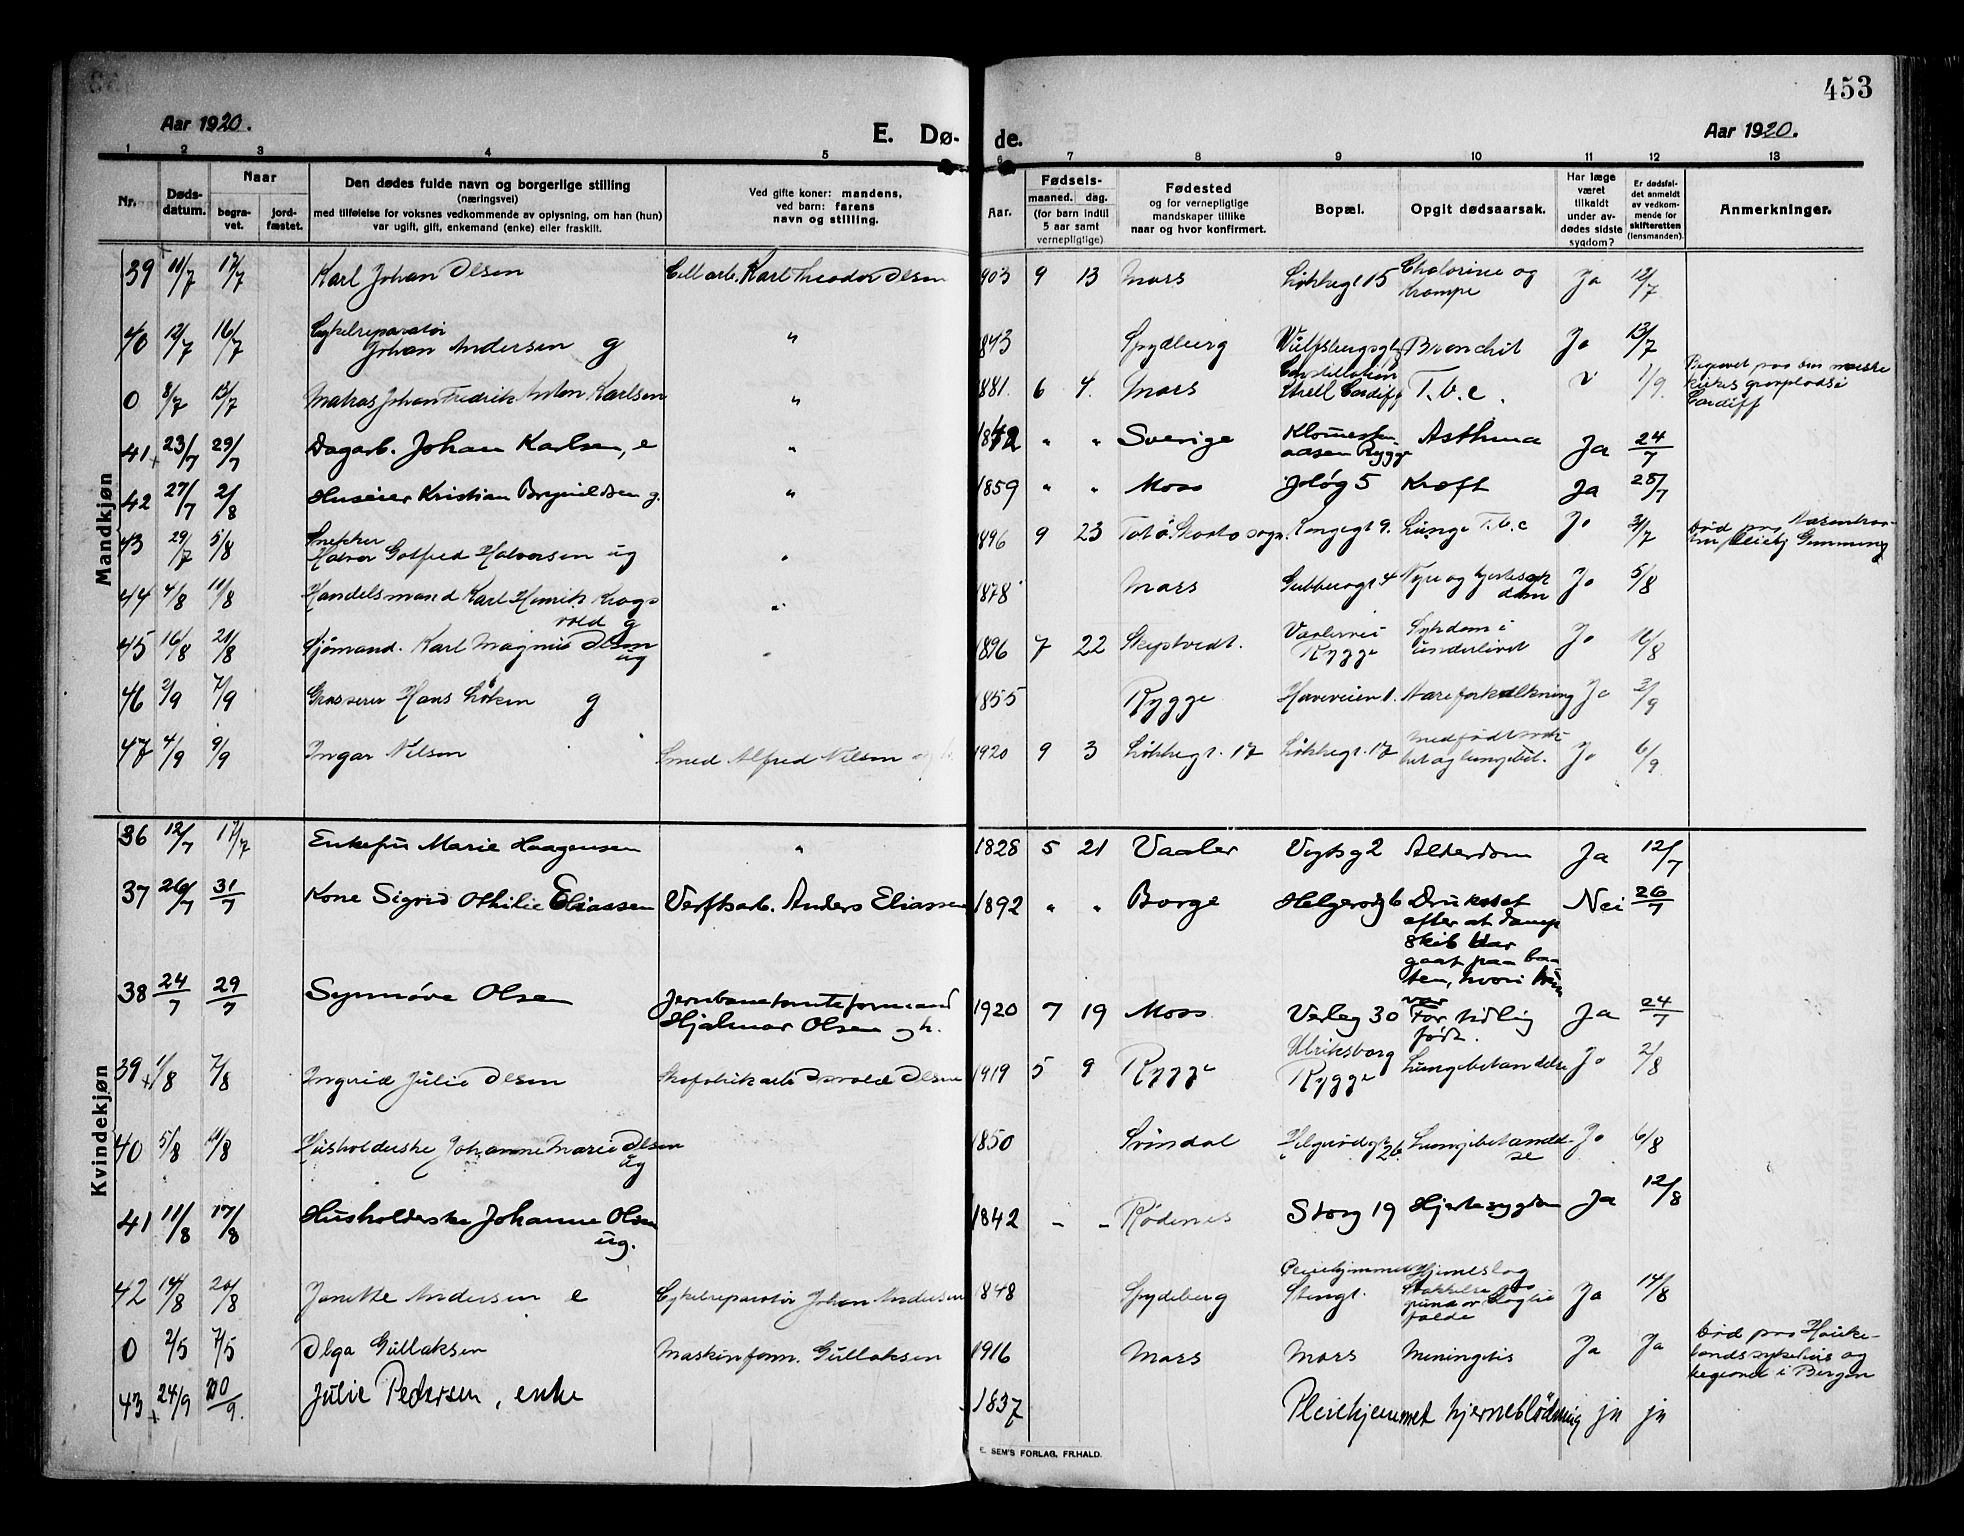 453
Aar 1920.
E. Dø- de.
Aar 1920.
1 2 3 4 5 6 7 8 9 10 11 12 13
Nr.
Døds-
datum.
Naar
begra-
vet.
jord-
fæstet.
Den dødes fulde navn og borgerlige stilling
(næringsvei)
med tilføielse for voksnes vedkommende av oplysning, om han (hun)
var ugift, gift, enkemand (enke) eller fraskilt.
Ved gifte koner: mandens,
ved barn: farens
navn og stilling.
Aar.
Fødsels-
maaned. dag.
(for barn indtil
5 aar samt
vernepligtige)
Fødested
og for vernepligtige
mandskaper tillike
naar og hvor konfirmert.
Bopæl.
Opgit dødsaarsak.
Har læge
været
tilkaldt
under av-
dødes sidste
sygdom?
Er dødsfal-
det anmeldt
av vedkom-
mende for
skifteretten
(lensmanden).
Anmerkninger.
Mandkjøn
39 11/7 17/7 Karl Johan Olsen Cell arb. Karl Theodor Olsen 1903 9 13 Moss Løkkegt 15 Cholerine og
Krampe Ja 12/7
40 12/7 16/7 Cykelreparatør
Johan Andersen g " 1843 Spydberg Wulfsbergsgt Bronchit Ja 13/7
0 8/7 13/7 Matros Johan Fredrik Anton Karlsen " 1881. 6 4. Moss Cardiff T.b.c. 1/9.
Cardiff
41 + 23/7 29/7 Dagarb. Johan Karlsen, e " " " Sverige Rygge Asthma Ja 24/7
42 27/7 2/8 Huseier Kristian Brynildsen g. " 1859 " " Moss Kræft Ja 28/7
43 29/7 5/8 Snekker
Halvor Gotfred Halvorsen ug " 1896 9 23 Kongegt 9. Lunge T.b.c Ja
44 4/8 11/8 Handelsmand Karl Henrik Krogs
vold g " 1878 Moss Gubberogt 4 Nyre og hjertesyk
dom Ja 5/8
45 16/8 21/8 Sjømand. Karl Magnus Olsen
ug 1896 7 22 Skiptvedt. Varlervei
Rygge Sykdom i
underlivet Ja
46 2/9 7/9 Grosserer Hans Løken g 1855 Rygge Haveveien 1. Aareforkalkning Ja 3/9
47 4/9 9/9 Ingar Nilsen Smed Alfred Nilsen 1920 9 3 Løkkegt. 17 Løkkegt. 17 Ja 6/9
Kvindekjøn
36 12/7 17/7 Enkefru Marie Haagensen " 1828 5 21 Vaaler Vogtsg 2 Alderdom Ja 12/7
37 26/7 31/7 Kone Sigrid Othilie Eliassen Verftsarb. Anders Eliassen 1892 " " Borge Helgerødg 6 Druknet
efter at damp
skib har
gaat paa baa
ten, hvori hun
var Nei 26/7
38 24/7 29/7 Synnøve Olsen Jernbanetomteformand
Hjalmar Olsen og h. 1920 7 19 Moss Verleg 30 For tidlig
født. Ja 24/7
39 + 1/8 7/8 Ingrid Julie Olsen Skofabrikarb Olsen 1919 5 9 Rygge Ulriksborg
Rygge Lungebetændelse Ja 2/8
40 5/8 11/8 Husholderske Johanne Marie Olsen
ug 1850 Svindal Helgerødgt
26. Lungebetændel-
se Ja 6/8
41 11/8 17/8 Husholderske Johanne Olsen
ug. 1842 - - Rødenes Storg 19 Hjertesygdom Ja 12/8
42 14/8 20/8 Janette Andersen e Cykelreparatør Johan Andersen 1848 Spydeberg Pleiehjemmet
Stengt. Ja 14/8
0 2/5 7/5 Olga Gullaksen Maskinform. Gullaksen 1916 Moss Moss Meningitis Ja Ja Død paa Hauke-
landssykehus og
begravet i Bergen
43 + 24/9 Julie Pedersen, enke 1837 Pleiehjemmet hjerneblödning ja ja
E. SEM'S FORLAG, FR.HALD.